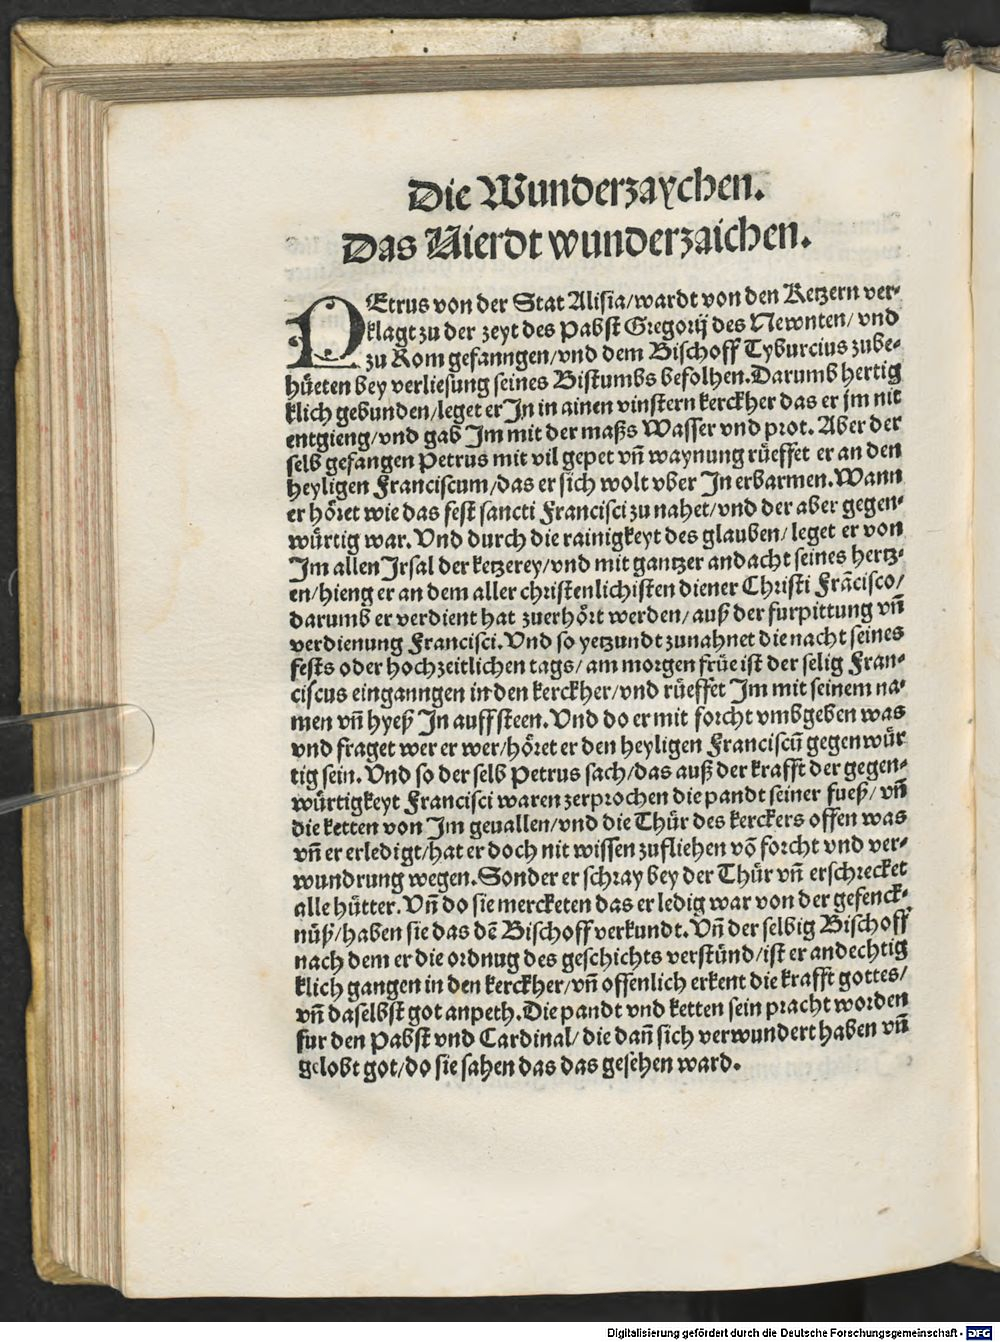 Die Wunderzaychen.
Das Vierdt wunderzaichen.
PEtrus von der Stat Alisia/wardt von den Ketzern ver-
klagt zu der zeyt des Pabst Gregorij des Newnten/ vnd
zu Rom gefanngen/vnd dem Bischoff Tyburcius zube-
hüeten bey verliesung seines Bistumbs befolhen. Darumb hertig
klich gebunden/leget er Jn in ainen vinstern kerckher das er jm nit
entgieng/vnd gab Jm mit der maßs Wasser vnd prot. Aber der
selb gefangen Petrus mit vil gepet vñ waynung rüeffet er an den
heyligen Franciscum/das er sich wolt vber Jn erbarmen. Wann
er höret wie das fest sancti Francisci zu nahet/vnd der aber gegen-
würtig war. Vnd durch die rainigkeyt des glauben/ leget er von
Jm allen Jrsal der ketzerey/vnd mit gantzer andacht seines hertz-
en/hieng er an dem aller christenlichisten diener Christi Frãcisco/
darumb er verdient hat zuerhört werden/ auß der furpittung vñ
verdienung Francisci. Vnd so yetzundt zunahnet die nacht seines
fests oder hochzeitlichen tags/ am morgen früe ist der selig Fran-
ciscus eingangen in den kerckher/vnd rüeffet Jm mit seinem na-
men vñ hyeß Jn auffsteen. Vnd do er mit forcht vmbgeben was
vnd fraget wer er wer/höret er den heyligen Franciscũ gegenwür
tig sein. Vnd so der selb Petrus sach/das auß der krafft der gegen-
würtigkeyt Francisci waren zerprochen die pandt seiner fueß/ vñ
die ketten von Jm geuallen/vnd die Thür des kerckers offen was
vñ er erledigt/hat er doch nit wissen zufliehen võ forcht vnd ver-
wundrung wegen. Sonder er schray bey der Thür vñ erschrecket
alle hütter. Vñ do sie mercketen das er ledig war von der gefenck-
nüß/haben sie das dẽ Bischoff verkundt. Vñ der selbig Bischoff
nach dem er die ordnug des geschichts verstünd/ist er andechtig
klich gangen in den kerckher/vñ offenlich erkent die krafft gottes/
vñ daselbst got anpeth. Die pandt vnd ketten sein pracht worden
fur den Pabst vnd Cardinal/ die dañ sich verwundert haben vñ
gelobt got/do sie sahen das das gesehen ward.
Digitalisierung gefördert durch die Deutsche Forschungsgemeinschaft - DFG